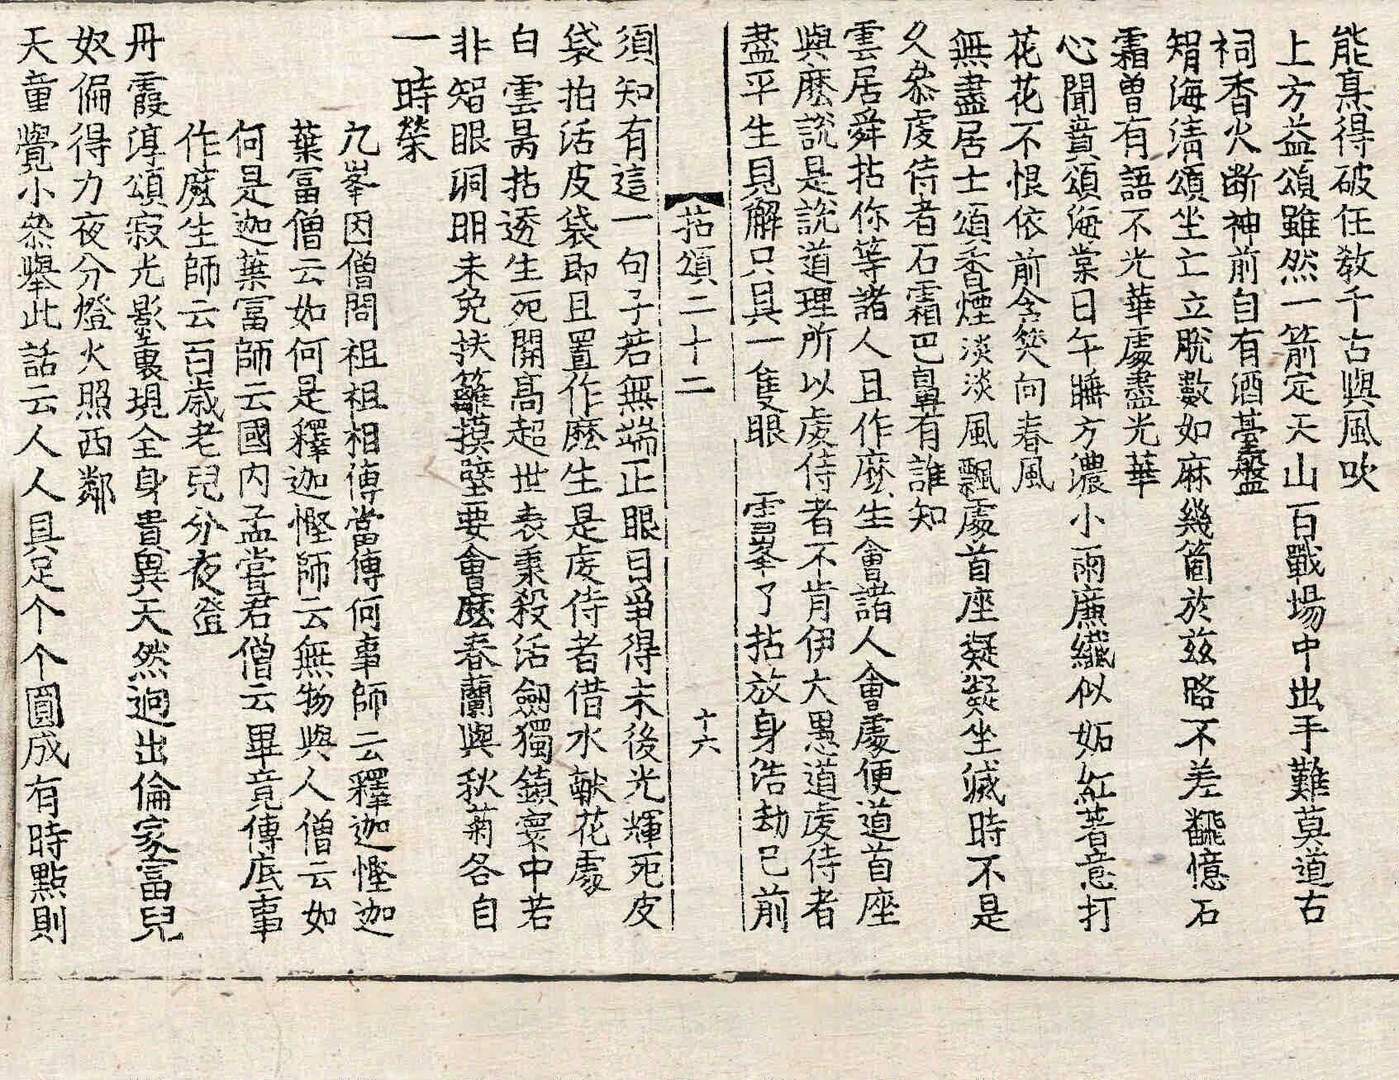 能真得破任教千古與風吹
上方益頌雖然一箭定天山百戰場中出手難莫道古
祠香火斷神前自有酒臺盤
智海淸頌坐亡立脫數如麻幾箇於玆略不差飜憶石
霜曾有語不光華處盡光華
心聞賁頌海棠日午睡方濃小雨廉纖似妬紅著意打
花花不恨依前含笑向春風
無盡居士頌香煙淡淡風飄處首座凝凝坐滅時不是
久叅虔侍者石霜巴鼻有誰知
雲居舜拈你等諸人且作麽生會諸人會處便道首座
與麽說是說道理所以虔侍者不肯伊大愚道虔侍者
盡平生見解只具一隻眼 雪峯了拈放身浩劫已前
拈頌二十二 十六
須知有這一句子若無端正眼目爭得末後光輝死皮
袋拍活皮袋卽且置作麽生是虔侍者借水獻花處
白雲昺拈透生死關高超世表秉殺活劒獨鎭寰中若
非智眼洞明未免扶籬摸壁要會麽春蘭與秋菊各自
一時榮
九峯因僧問祖祖相傳當傳何事師云釋迦慳迦
葉冨僧云如何是釋迦慳師云無物與人僧云如
何是迦葉冨師云國內孟嘗君僧云畢竟傳底事
作麽生師云百歲老兒分夜燈
丹霞淳頌寂光影裏現全身貴異天然逈出倫家富兒
奴偏得力夜分燈火照西鄰
天童覺小叅擧此話云人人具足个个圓成有時點則